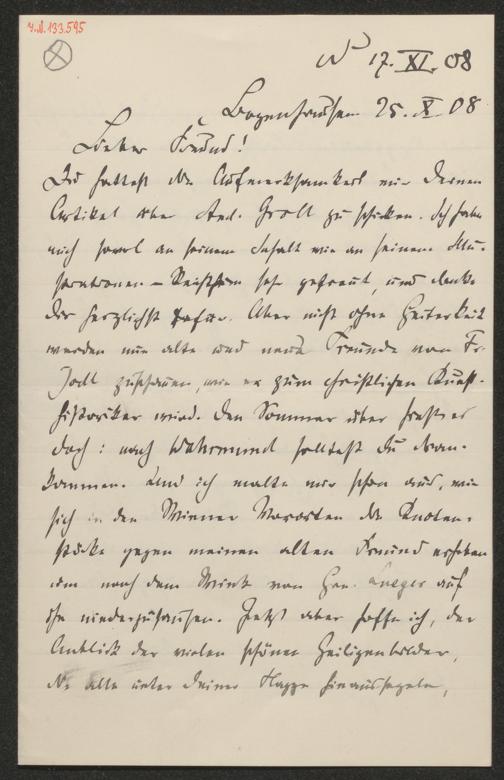 I.N. 133.595
N 17. XI. 08
Bogenhausen 25. X 08
Lieber Freund!
Du hattest die Aufmerksamkeit mir Deinen
Artikel über And. Groll zu schicken. Ich habe
mich sowol an seinem Inhalt wie an seinem Illu-
strationen-Reichthum sehr gefreut, und danke
Dir herzlichst dafür. Aber nicht ohne Heiterkeit
werden nun alte und neue Freunde von Fr.
Jodl zuschauen, wie er zum christlichen Kunst-
historiker wird. Den Sommer über hieß es
doch: nach Wahrmund solltest Du dran-
kommen. Und ich malte mir schon aus, wie
sich in den Wiener Vororten die Knoten-
stöcke gegen meinen alten Freund erheben
um nach dem Wink von Hrn. Lueger auf
ihn niederzusausen. Jetzt aber hoffe ich, der
Anblick der vielen schönen Heiligenbilder,
die alle unter Deiner Flagge hinaussegeln,